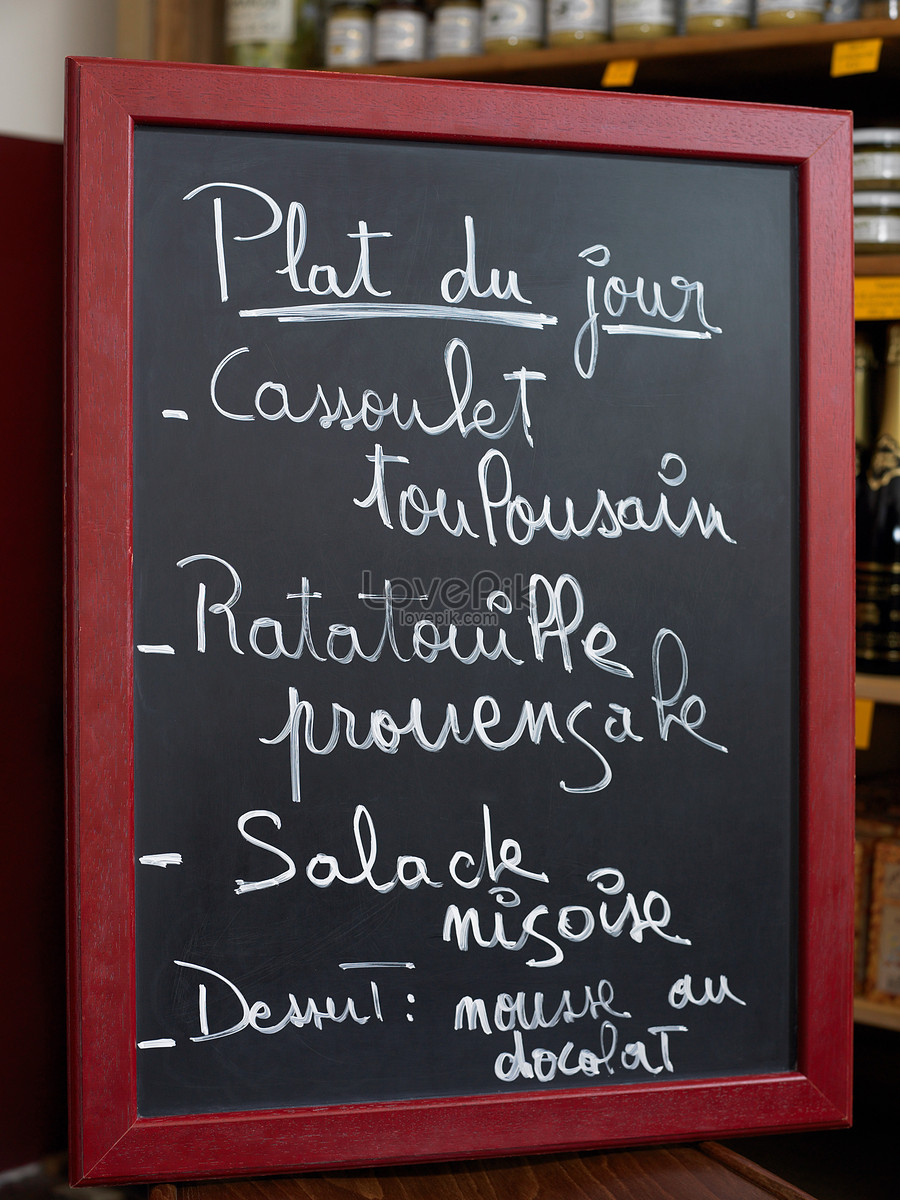 Plat du jour
- Cassoulet
toulousain
- Ratatouille
provençale
- Salade
niçoise
- Dessert : mousse au
chocolat
LovePik
lovepik.com